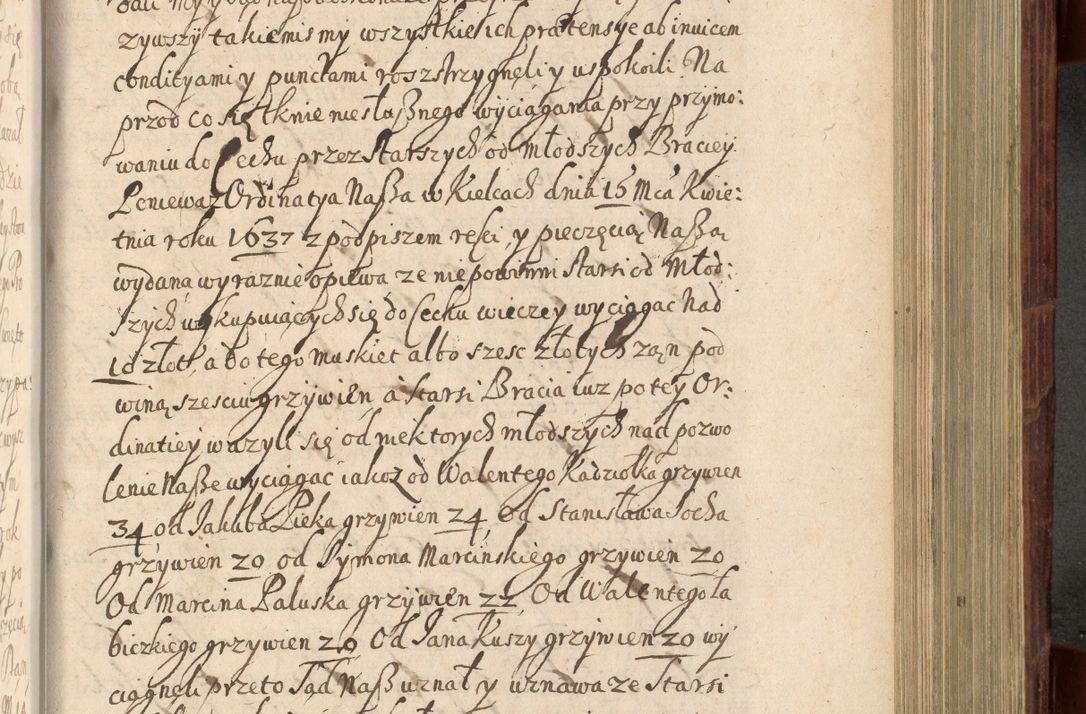 zywszy takiemismy wszystkie ich prætensye ab invicem
condityami y punctami roszstrzygnęli y uspokoili. Na
przod co się tknie niesłusznego wyciągania przy przymo:
waniu do Cechu przez Starszych od młodszych Braciey.
Poniewaz Ordinatya Nasza w Kielcach dnia 15 Mca Kwie:
tnia roku 1637 z podpiszem ręki, y pieczęcią Naszą
wydana wyraznie opiewa ze niepowinni Starsi od Młod:
szych wkupuiących się do Cechu wieczey wyciągac nad
10 złot, a bo tego muskiet albo szesc złotych zań pod
winą szesciu grzywien, a Starsi Bracia iuz po tey Or:
dinatiey wazyli się od niektorych młodszych nad pozwo
lenie Nasze wyciągać iakoz od Walentego Kadziołka grzywien
34 od Jakuba Pieka grzywien 24, Od Stanisława Socha
grzywien 20 od Symona Marcinskiego grzywien 20
Od Marcina Paluska grzywien 22, Od Walentego Ła
biczkiego grzywien 20, Od Jana Kuszy grzywien 20 wy
ciągneli przeto Sąd Nasz uznał y uznawa ze Starsi